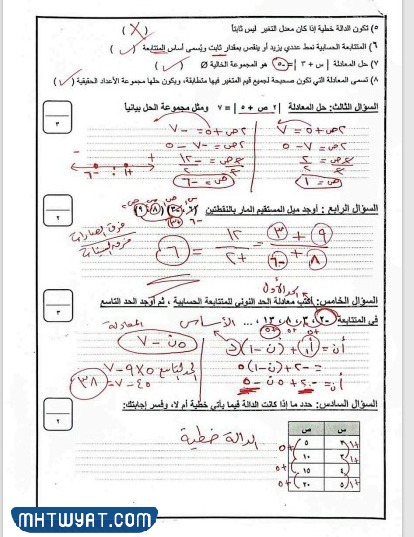 ٥) تكون الدالة خطية إذا كان معدل التغير ليس ثابتاً (✗)
٦) المتتابعة الحسابية نمط عددي يزيد أو ينقص بمقدار ثابت ويُسمى أساس المتتابعة (✓)
٧) حل المعادلة | س + ٣ | = -٥ هو المجموعة الخالية Ø (✓)
٨) تسمى المعادلة التي تكون صحيحة لجميع قيم المتغير فيها متطابقة، ويكون حلها مجموعة الأعداد الحقيقية (✓)
٣
السؤال الثالث: حل المعادلة | ٢ص + ٥ | = ٧ ومثل مجموعة الحل بيانياً
٢ص + ٥ = ٧
٢ص + ٥ = -٧
٢ص = ٧ - ٥
٢ص = -٧ - ٥
ص = ١
ص = -٦
٢
السؤال الرابع: أوجد ميل المستقيم المار بالنقطتين
فرق الصادات
فرق السينات
٣
السؤال الخامس: اكتب معادلة الحد النوني للمتتابعة الحسابية، ثم أوجد الحد التاسع
الحد الأول
في المتتابعة -٢، ٣، ٨، ١٣، ...
الأساس
المعادلة
أن = أ١ + (ن - ١) د
٥ن - ٧
= -٢ + (ن - ١) ٥
الحد التاسع ٥×٩ - ٧
أن = -٢ + ٥ن - ٥
٤٥ - ٧ = ٣٨
٢
السؤال السادس: حدد ما إذا كانت الدالة فيما يأتي خطية أم لا، وفسر إجابتك:
الدالة خطية
س ص
٥
٣ ١٠
٤ ١٥
٥ ٢٠
MHTWYAT.COM